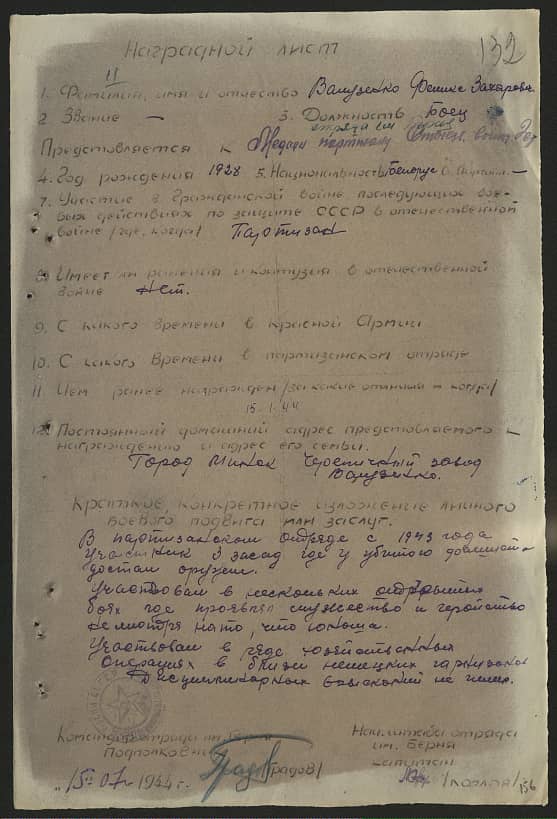 132
Наградной лист
1. Фамилия, имя и отчество Валузенко Феликс Захаров
2 Звание — 3. Должность Боец
отряда им Берия
Представляется к Медали партизану Отечеств. войны
4. Год рождения 1928 5. Национальность Белорус 6. —
7. Участие в Гражданской войне последующих бое-
вых действиях по защите СССР в отечественной
войне /где, когда/ Партизан
8. Имеет ли ранения и контузия в отечественной
войне нет.
9. С какого времени в Красной Армии
10. С какого Времени в партизанском отряде
11 Чем ранее награжден /за какие отличия и когда/
15.1.44
12. Постоянный домашний адрес представляемого к
награждению и адрес его семьи.
Город Минск завод
Валузенко.
Краткое, конкретное изложение личного
боевого подвига или заслуг.
В партизанском отряде с 1943 года
Участник 3 засад где у убитого
достал оружие.
Участвовал в нескольких
боях где проявлял мужество и геройство
несмотря на то, что юноша.
Участвовал в ряде хозяйственных
Операциях в близи немецких гарнизонов
Дисциплинарных взысканий не имел.
Командир отряда им. Берия
Подполковник /Градов/
Нач. штаба отряда
им. Берия
капитан
"15" 07 1944 г.
156